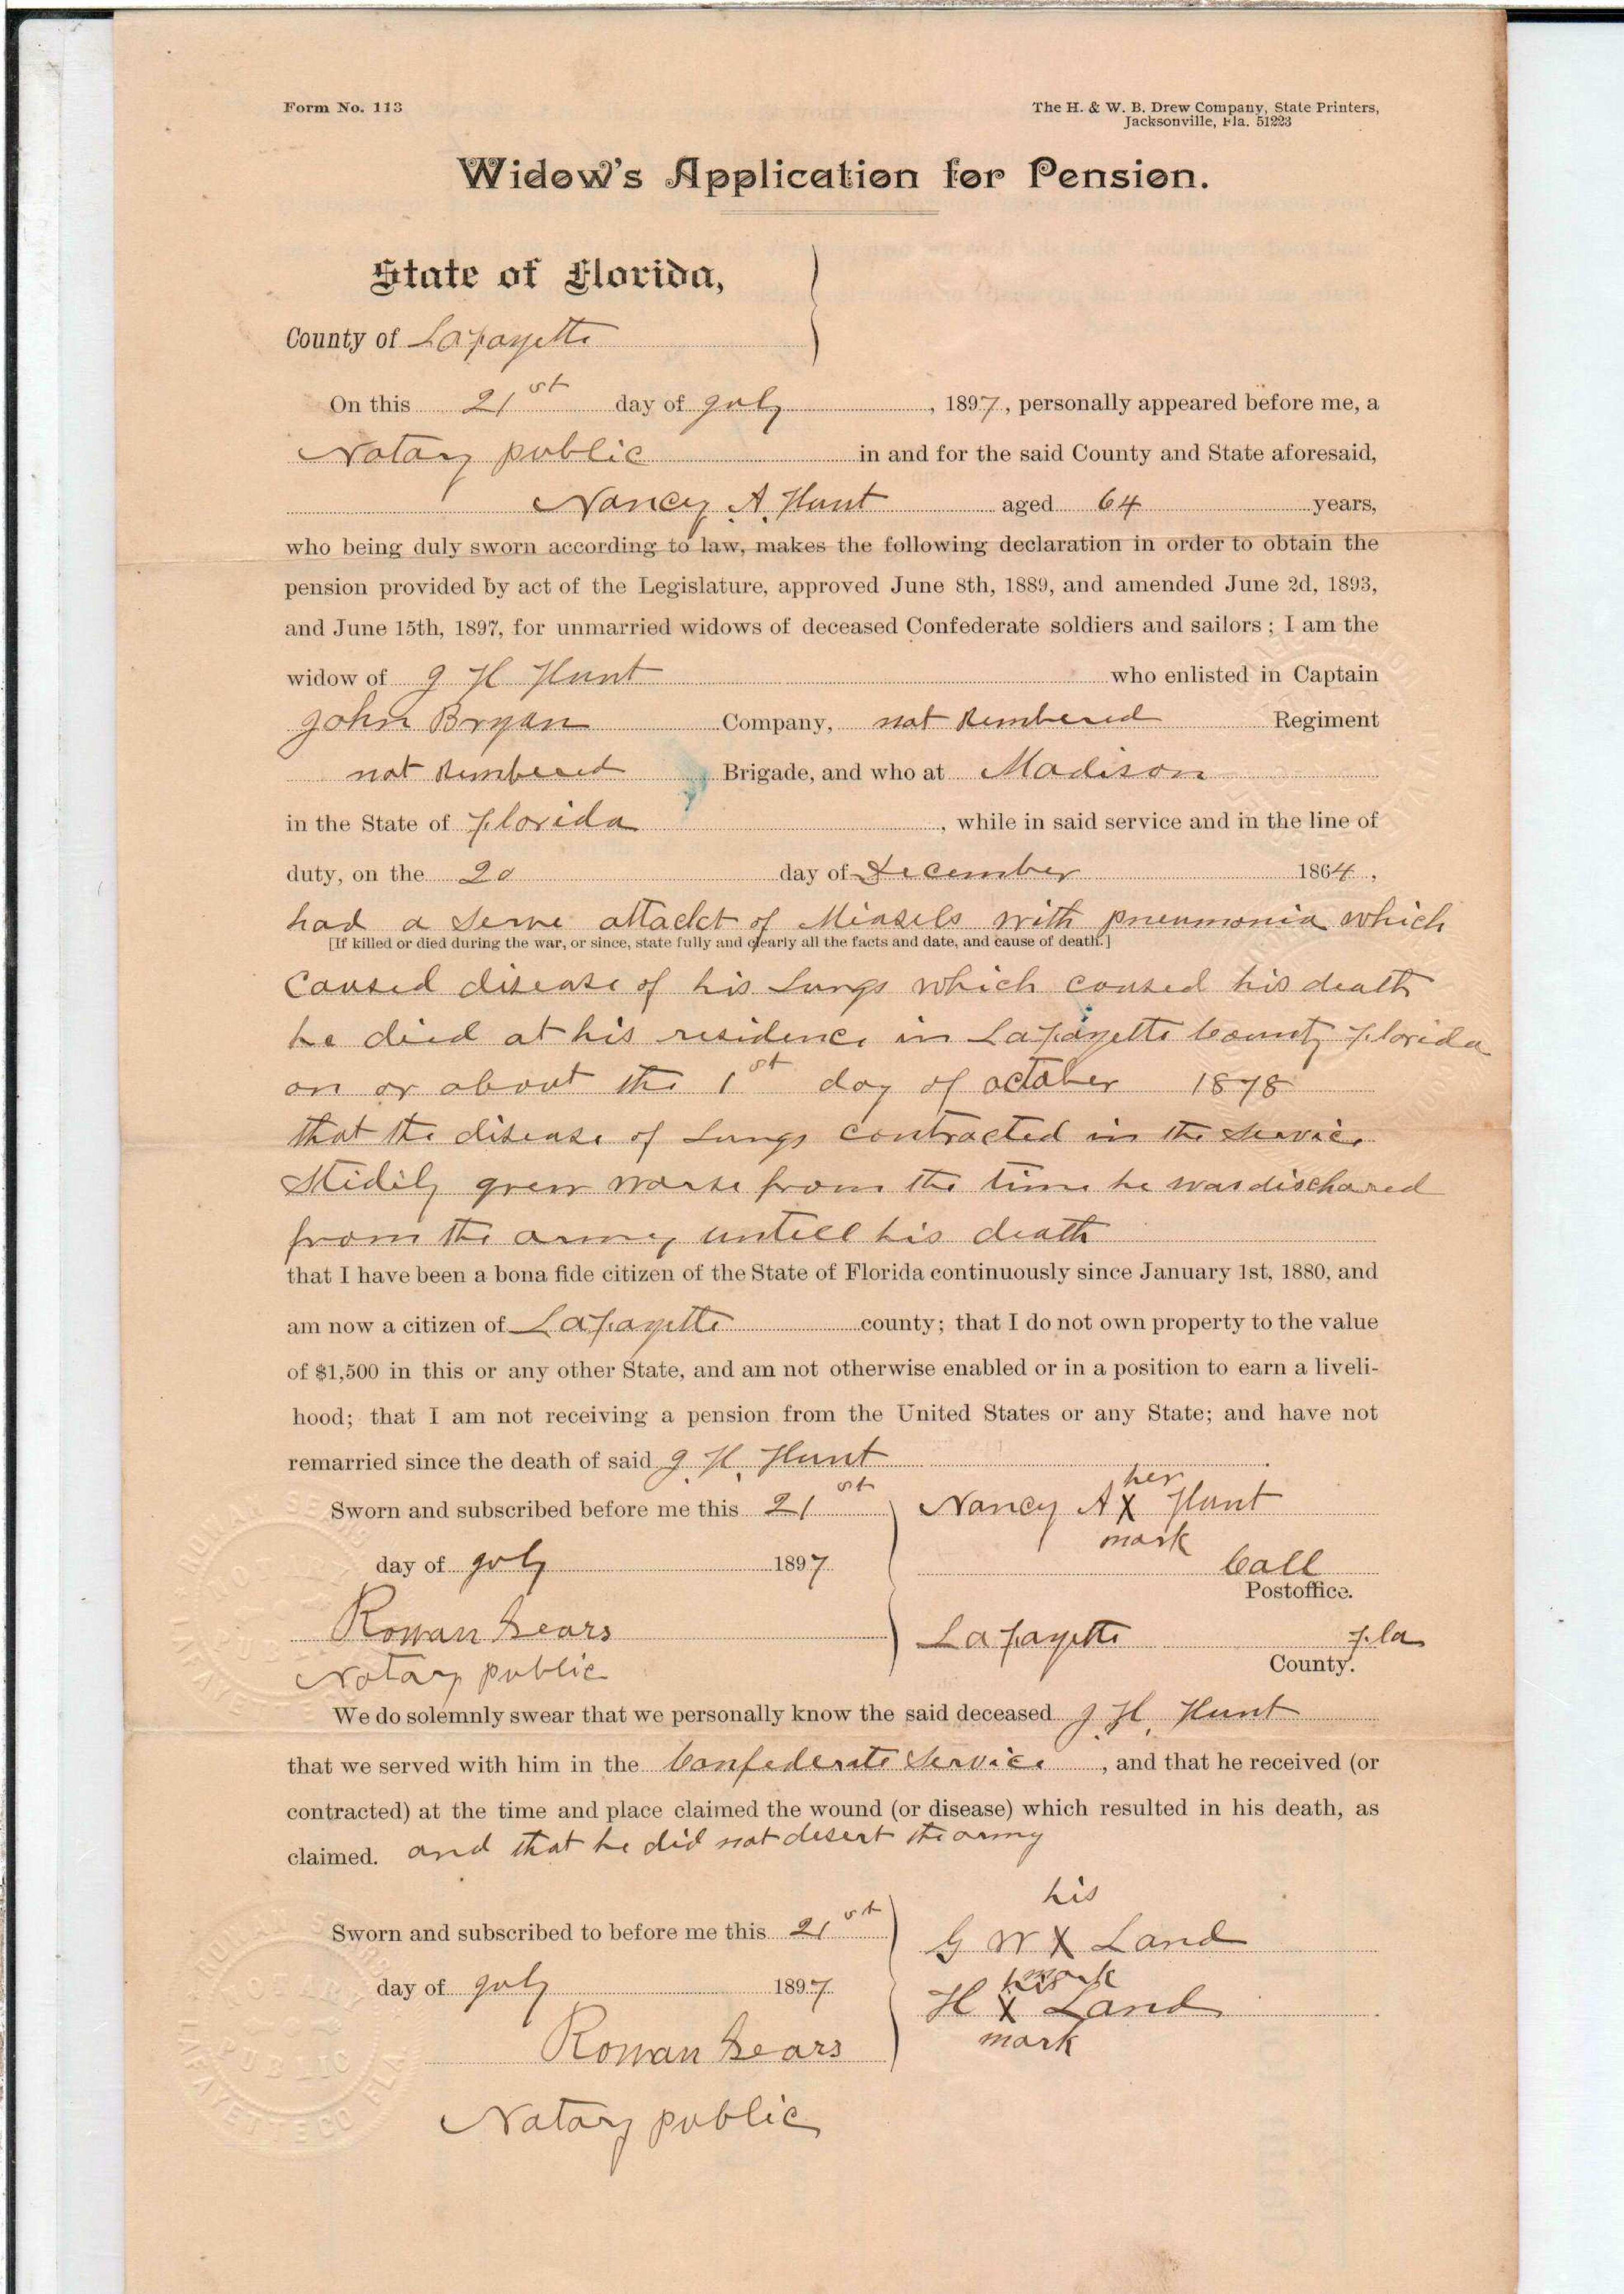 Form No. 113
The H. & W. B. Drew Company, State Printers,
Jacksonville, Fla. 51223
Widow's Application for Pension.
State of Florida,
County of Lafayette
On this 21st day of July, 1897, personally appeared before me, a
Notary public in and for the said County and State aforesaid,
Nancy A. Hunt aged 64 years,
who being duly sworn according to law, makes the following declaration in order to obtain the
pension provided by act of the Legislature, approved June 8th, 1889, and amended June 2d, 1893,
and June 15th, 1897, for unmarried widows of deceased Confederate soldiers and sailors; I am the
widow of J H Hunt who enlisted in Captain
John Bryan Company, not Rembered Regiment
not Rembered Brigade, and who at Madison
in the State of Florida, while in said service and in the line of
duty, on the 20 day of December 1864,
had a Serve attackt of Measels with pneumonia which
[If killed or died during the war, or since, state fully and clearly all the facts and date, and cause of death.]
Caused disease of his Lungs which caused his death
he died at his residence in Lafayette County Florida
on or about the 1st day of october 1878
that the disease of Lungs contracted in the Service
Stidily grew worse from the time he was dischared
from the army untill his death
that I have been a bona fide citizen of the State of Florida continuously since January 1st, 1880, and
am now a citizen of Lafayette county; that I do not own property to the value
of $1,500 in this or any other State, and am not otherwise enabled or in a position to earn a liveli-
hood; that I am not receiving a pension from the United States or any State; and have not
remarried since the death of said J. H. Hunt
Sworn and subscribed before me this 21st
day of July 1897
Rowan Sears
Notary public
her
Nancy A X Hunt
mark
Call
Postoffice.
Lafayette Fla
County.
We do solemnly swear that we personally know the said deceased J. H. Hunt
that we served with him in the Confederate Service, and that he received (or
contracted) at the time and place claimed the wound (or disease) which resulted in his death, as
claimed. and that he did not desert the army
Sworn and subscribed to before me this 21st
day of July 1897
Rowan Sears
Notary public
his
G W X Land
mark
his
H X Land
mark
ROWAN SEARS
NOTARY
PUBLIC
LAFAYETTE CO FLA